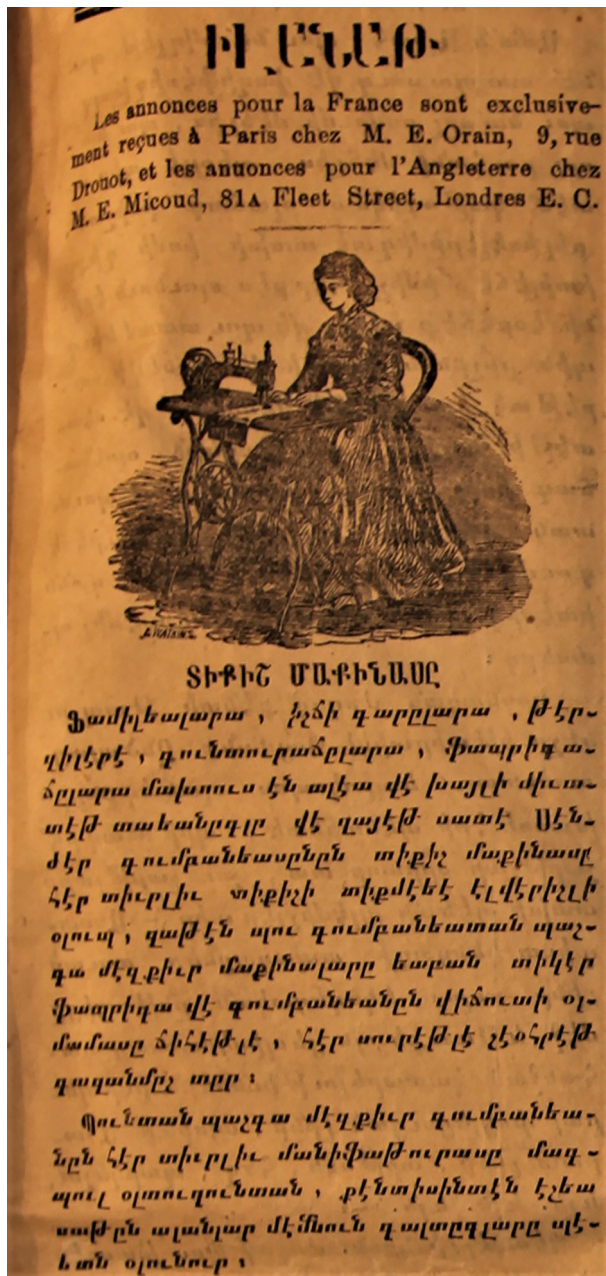 ԻԼԱՆԱԹ
Les annonces pour la France sont exclusive-
ment reçues à Paris chez M. E. Orain, 9, rue
Drouot, et les annonces pour l'Angleterre chez
M. E. Micoud, 81A Fleet Street, Londres E. C.
ՏԻՔԻՇ ՄԱՔԻՆԱՍԸ
Ֆամիլեալարա, իչճի գարըլարա, թէր-
զիլէրէ, գունտուրաճըլարա, ֆապրիգա-
ճըլարա մախսուս էն ալէա վէ խայլի միւտ-
տէթ տաեանըգլը վէ ղայէթ սատէ Սէն-
ժէր գումբանեասընըն տիքիշ մաքինասը
հէր տիւրլիւ տիքիշի տիքմէեէ էլվէրիշլի
օլուպ, զաթէն պու գումբանեատան պաշ-
գա մէզքիւր մաքինալարը եաբան տիկէր
ֆապրիգա վէ գումբանեանըն վիճուտի օլ-
մամասը ճիհէթլէ, հէր սուրէթլէ շէօհրէթ
գազանմըշ տըր։
Պունտան պաշգա մէզքիւր գումբանեա-
նըն հէր տիւրլիւ մանիֆաթուրասը մագ-
պուլ օլտուղունտան, քէնտիսինտէն էշեա
սաթըն ալանլար մէմնուն գալտըգլարը պէ-
եան օլունուր։